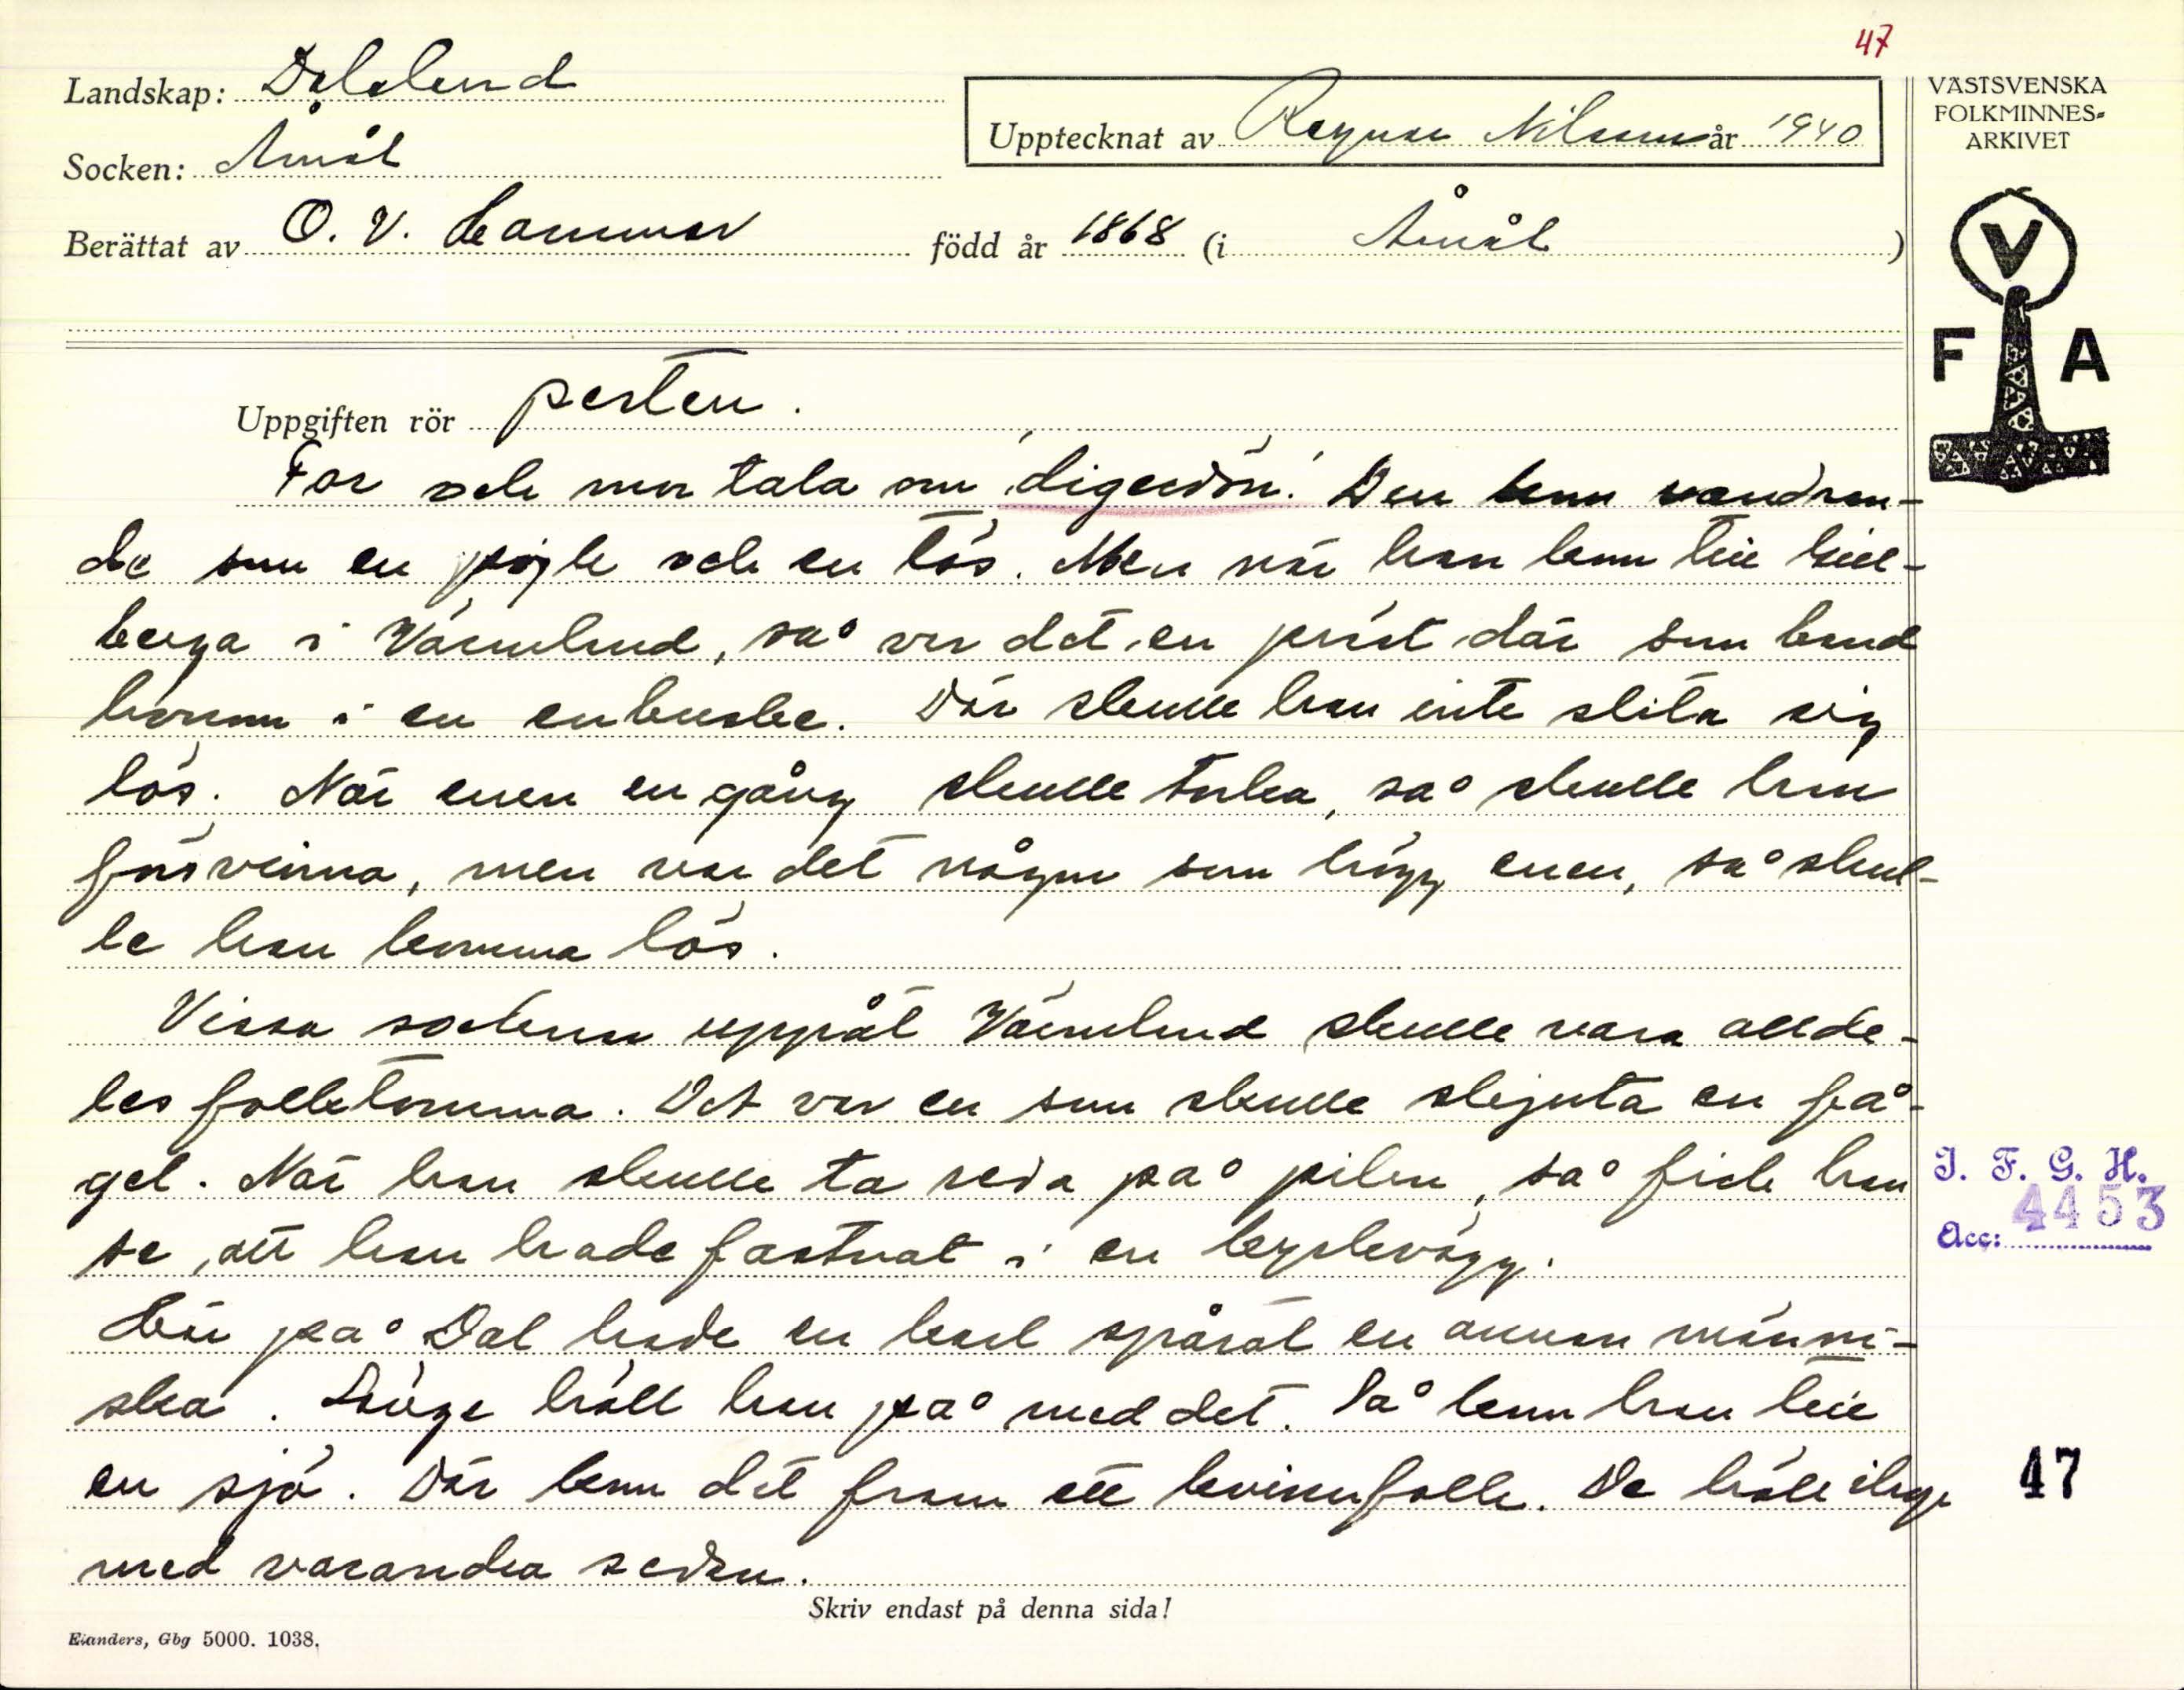 47
Landskap: Dalsland
Socken: Åmål
Upptecknat av Ragnar Nilsson år 1940
Berättat av O. V. Hammar född år 1868 (i Åmål)
VÄSTSVENSKA
FOLKMINNES-
ARKIVET
V
F A
Uppgiften rör pesten.
Far och mor tala om 'digerdön'. Den kom vandran-
de som en pojke och en tös. Men när han kom till Gill-
berga i Värmland, så var det en präst där som band
honom i en enbuske. Där skulle han inte slita sig
lös. När enen en gång skulle torka, så skulle han
försvinna, men var det någon som högg enen, så skul-
le han komma lös.
Vissa socknar uppåt Värmland skulle vara allde-
les folktomma. Det var en som skulle skjuta en få-
gel. När han skulle ta reda på pilen, så fick han
se, att han hade fastnat i en kyrkvägg.
Här på Dal hade en karl spårat en annan männi-
ska. Länge höll han på med det. Så kom han till
en sjö. Där kom det fram ett kvinnfolk. De höll ihop
med varandra sedan.
Skriv endast på denna sida!
Elanders, Gbg 5000. 1038.
I. F. G. H.
Acc: 4453
47